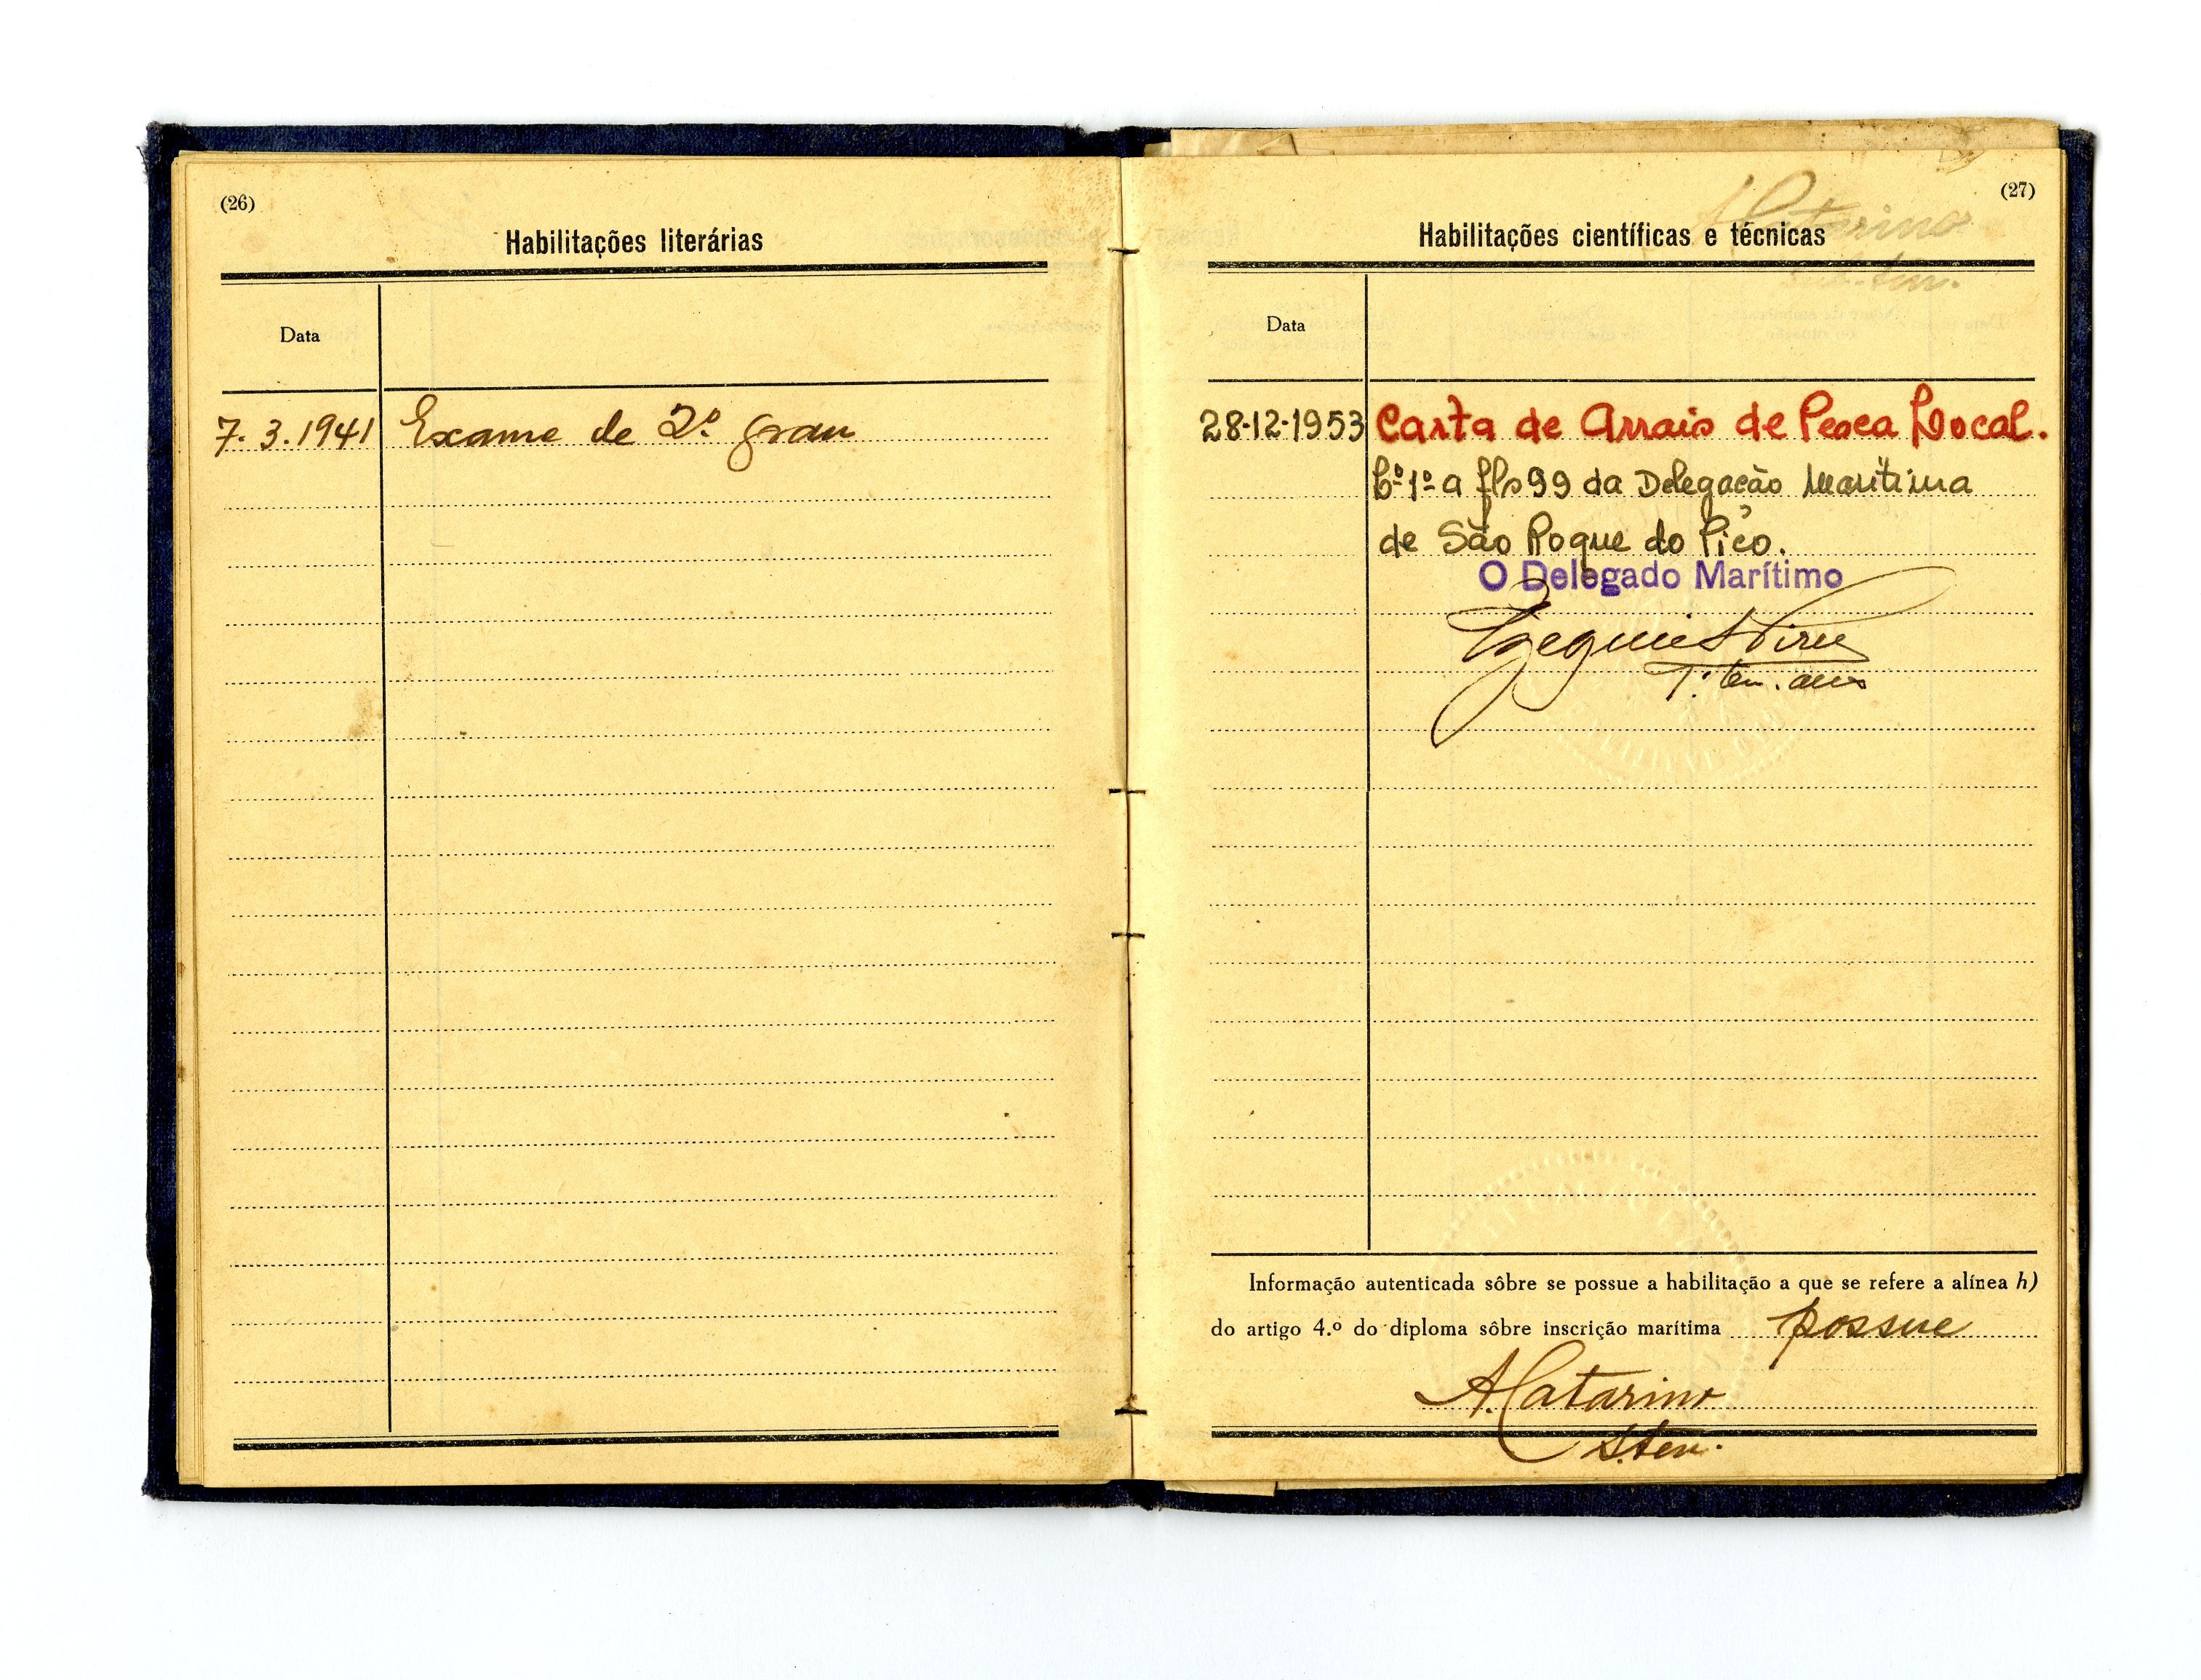 (26)
Habilitações literárias
Data
7.3.1941 Exame de 2º grau
(27)
Habilitações científicas e técnicas
Data
28-12-1953 Carta de Arrais de Pesca Local.
Lº 1º a fls 99 da Delegacão Marítima
de São Roque do Pico.
O Delegado Marítimo
1º ten. aux
Informação autenticada sôbre se possue a habilitação a que se refere a alínea h)
do artigo 4.º do diploma sôbre inscrição marítima possue
A. Catarino
S. ten.